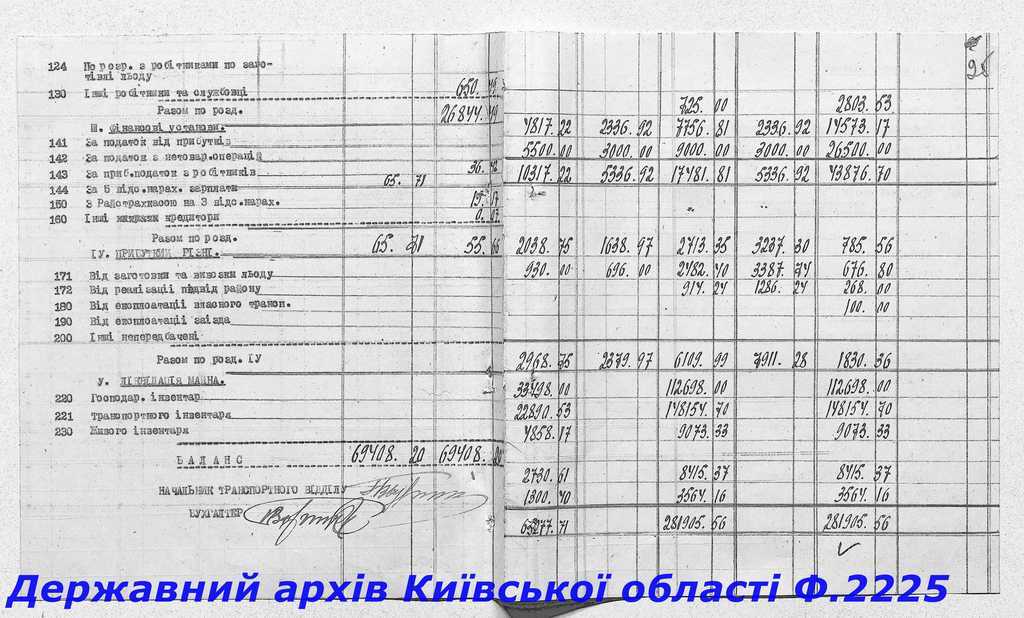 124 По розр. з робітниками по заго-
тівлі льоду
130 Інші робітники та службовці 650. 49
Разом по розд. 26844. 49
725. 00 2803. 53
Ш. Фінансові установи.
4817. 22 2336. 92 7756. 81 2336. 92 14573. 17
141 За податок від прибутків
5500. 00 3000. 00 9000. 00 3000. 00 26500. 00
142 За податок з нетовар.операцій
143 За приб.податок з робітників 65. 71 36.
10317. 22 5336. 92 17481. 81 5336. 92 43876. 70
144 За 5 відс.нарах. зарплати
150 З Райстрахкасою на 3 відс.нарах. 19. 07
160 Інші кредитори 0. 07
Разом по розд. 65. 71 55. 66
2038. 75 1638. 97 2713. 35 3237. 30 785. 56
ІУ. ПРИБУТКИ РІЗНІ.
930. 00 696. 00 2482. 40 3387. 74 676. 80
171 Від заготовки та вивозки льоду
172 Від реалізації підвід району
914. 24 1286. 24 268. 00
180 Від експлоатації власного трансп.
100. 00
190 Від експлоатації заїзда
200 Інші непередбачені
Разом по розд. ІУ
2968. 75 2379. 97 6109. 99 7911. 28 1830. 36
У. ЛІКВІДАЦІЯ МАЙНА.
33498. 00 112698. 00 112698. 00
220 Господар. інвентар
22890. 53 148154. 70 148154. 70
221 Транспортного інвентаря
230 Живого інвентаря
4858. 17 9073. 33 9073. 33
БАЛАНС 69408. 20 69408. 20
2730. 61 8415. 37 8415. 37
НАЧАЛЬНИК ТРАНСПОРТНОГО ВІДДІЛУ
1300. 40 3564. 16 3564. 16
БУХГАЛТЕР
65277. 71 281905. 56 281905. 56
Державний архів Київської області Ф.2225